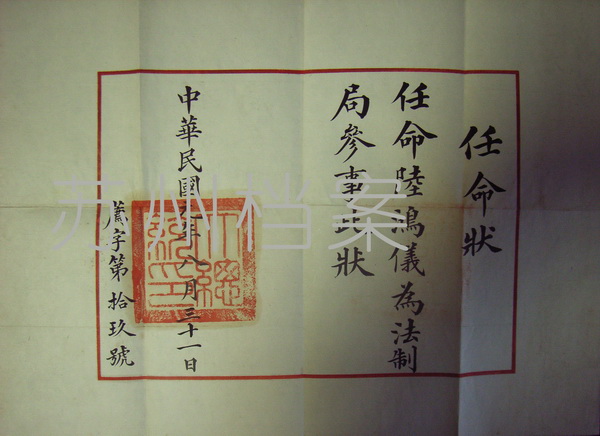 任命狀
任命陸鴻儀為法制
局參事此狀
中華民國元年八月三十一日
薦字第拾玖號
大總統印
苏州档案